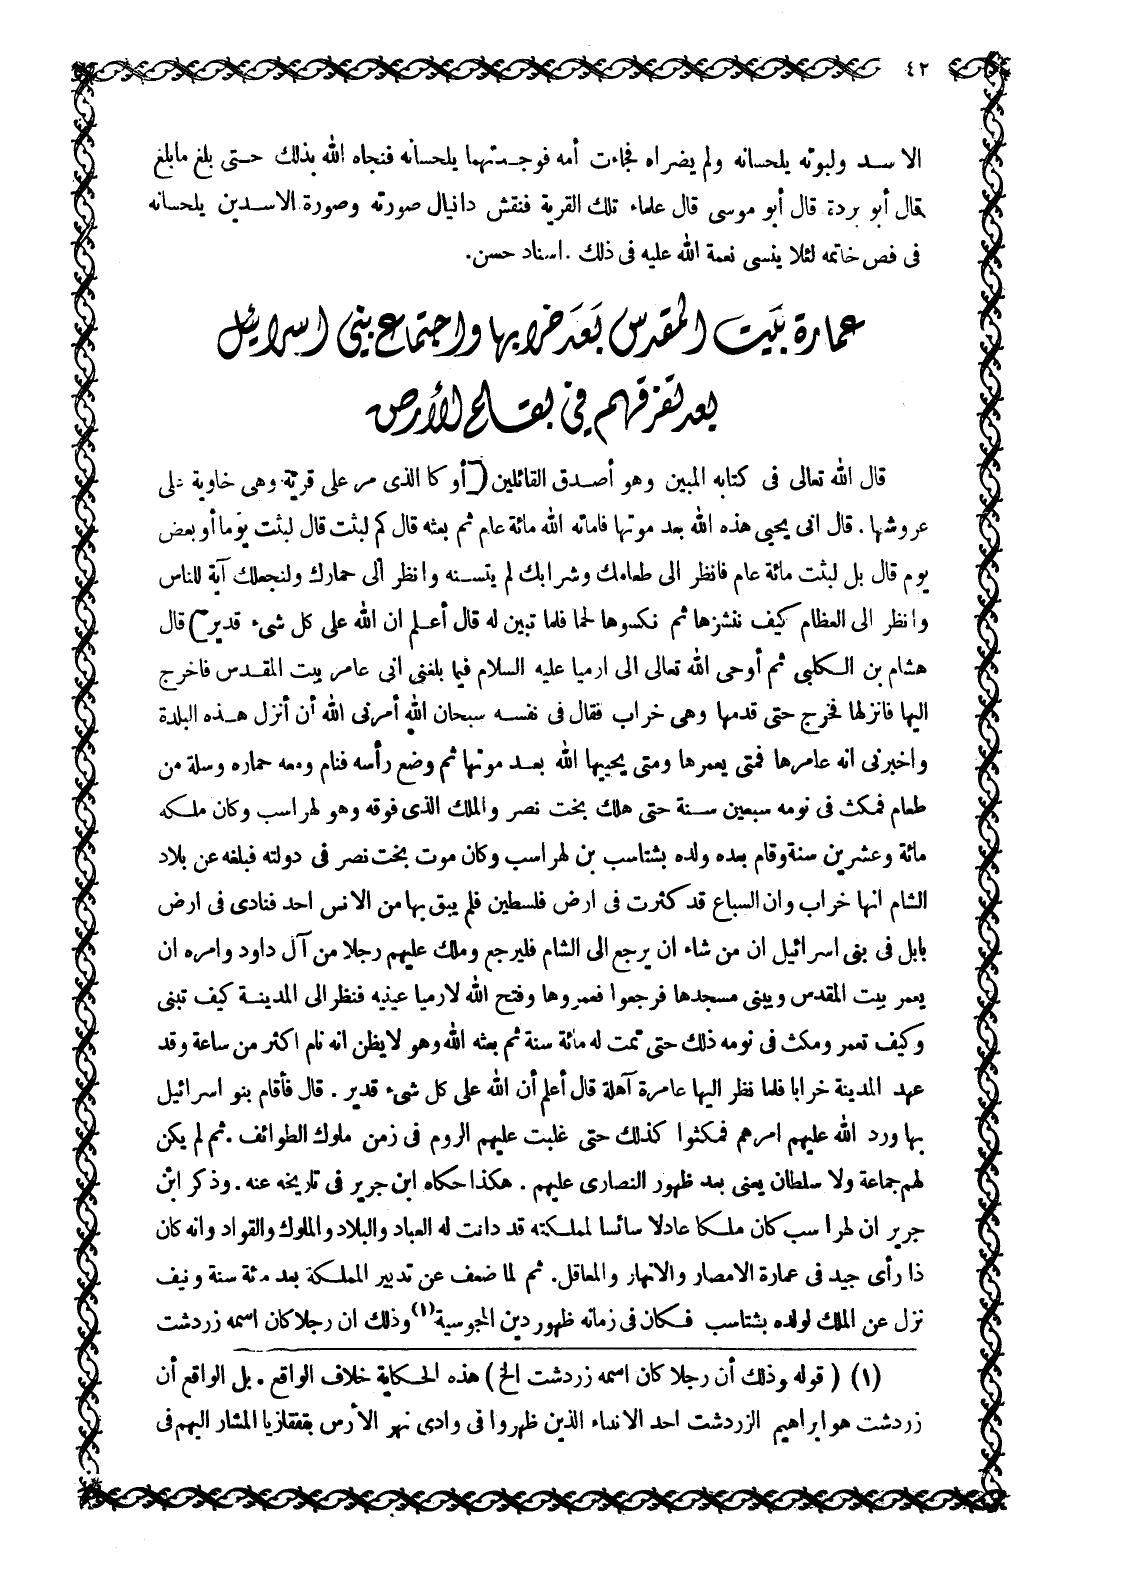 ٤٢
الاسد ولبوته يلحسانه ولم يضراه فجاءت أمه فوجدتهما يلحسانه فنجاه الله بذلك حتى بلغ مابلغ
قال أبو بردة قال أبو موسى قال علماء تلك القرية فنقش دانيال صورته وصورة الاسدين يلحسانه
فى فص خاتمه لئلا ينسى نعمة الله عليه فى ذلك . اسناد حسن .
عمارة بيت المقدس بعد خرابها واجتماع بني اسرائيل
بعد تفرقهم في بقاع الأرض
قال الله تعالى فى كتابه المبين وهو أصدق القائلين ( أو كا الذى مر على قرية وهى خاوية على
عروشها . قال انى يحيى هذه الله بعد موتها فاماته الله مائة عام ثم بعثه قال كم لبثت قال لبثت يوما أو بعض
يوم قال بل لبثت مائة عام فانظر الى طعامك وشرابك لم يتسنه وانظر الى حمارك ولنجعلك آية للناس
وانظر الى العظام كيف ننشزها ثم نكسوها لحما فلما تبين له قال أعلم ان الله على كل شىء قدير ) قال
هشام بن الكلبى ثم أوحى الله تعالى الى ارميا عليه السلام فيما بلغنى انى عامر بيت المقدس فاخرج
اليها فانزلها فخرج حتى قدمها وهى خراب فقال فى نفسه سبحان الله أمرنى الله أن أنزل هذه البلدة
واخبرنى انه عامرها فمتى يعمرها ومتى يحييها الله بعد موتها ثم وضع رأسه فنام ومعه حماره وسلة من
طعام فمكث فى نومه سبعين سنة حتى هلك بخت نصر والملك الذى فوقه وهو لهراسب وكان ملكه
مائة وعشرين سنة وقام بعده ولده بشتاسب بن لهراسب وكان موت بخت نصر فى دولته فبلغه عن بلاد
الشام انها خراب وان السباع قد كثرت فى ارض فلسطين فلم يبق بها من الانس احد فنادى فى ارض
بابل فى بنى اسرائيل ان من شاء ان يرجع الى الشام فليرجع وملك عليهم رجلا من آل داود وامره ان
يعمر بيت المقدس ويبنى مسجدها فرجعوا فعمروها وفتح الله لارميا عينيه فنظر الى المدينة كيف تبنى
وكيف تعمر ومكث فى نومه ذلك حتى تمت له مائة سنة ثم بعثه الله وهو لايظن انه نام اكثر من ساعة وقد
عهد المدينة خرابا فلما نظر اليها عامرة آهلة قال أعلم أن الله على كل شىء قدير . قال فأقام بنو اسرائيل
بها ورد الله عليهم امرهم فمكثوا كذلك حتى غلبت عليهم الروم فى زمن ملوك الطوائف . ثم لم يكن
لهم جماعة ولا سلطان يعنى بعد ظهور النصارى عليهم . هكذا حكاه ابن جرير فى تاريخه عنه . وذكر ابن
جرير ان لهراسب كان ملكا عادلا سائسا لمملكته قد دانت له العباد والبلاد والملوك والقواد وانه كان
ذا رأى جيد فى عمارة الامصار والانهار والمعاقل . ثم لما ضعف عن تدبير المملكة بعد مئة سنة ونيف
نزل عن الملك لولده بشتاسب فكان فى زمانه ظهور دين المجوسية (١) وذلك ان رجلا كان اسمه زردشت
(١) ( قوله وذلك أن رجلا كان اسمه زردشت الخ ) هذه الحكاية خلاف الواقع . بل الواقع أن
زردشت هو ابراهيم الزردشت احد الانبياء الذين ظهروا فى وادى نهر الأرس بقفقازيا المشار اليهم فى